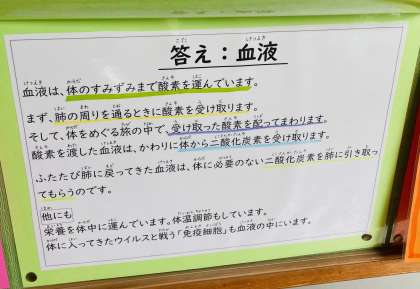 答え：血液
血液は、体のすみずみまで酸素を運んでいます。
まず、肺の周りを通るときに酸素を受け取ります。
そして、体をめぐる旅の中で、受け取った酸素を配ってまわります。
酸素を渡した血液は、かわりに体から二酸化炭素を受け取ります。
ふたたび肺に戻ってきた血液は、体に必要のない二酸化炭素を肺に引き取っ
てもらうのです。
他にも
栄養を体中に運んでいます。体温調節もしています。
体に入ってきたウイルスと戦う「免疫細胞」も血液の中にいます。